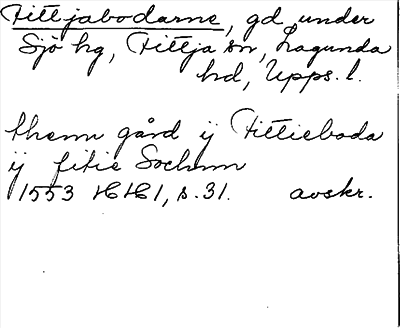 Fittjabodarne, gd under
Sjö hg, Fittja sn, Lagunda
hd, Upps. l.
thenn gård ij Fittieboda
ij fitie Sochnn
1553 HH1, s. 31. avskr.